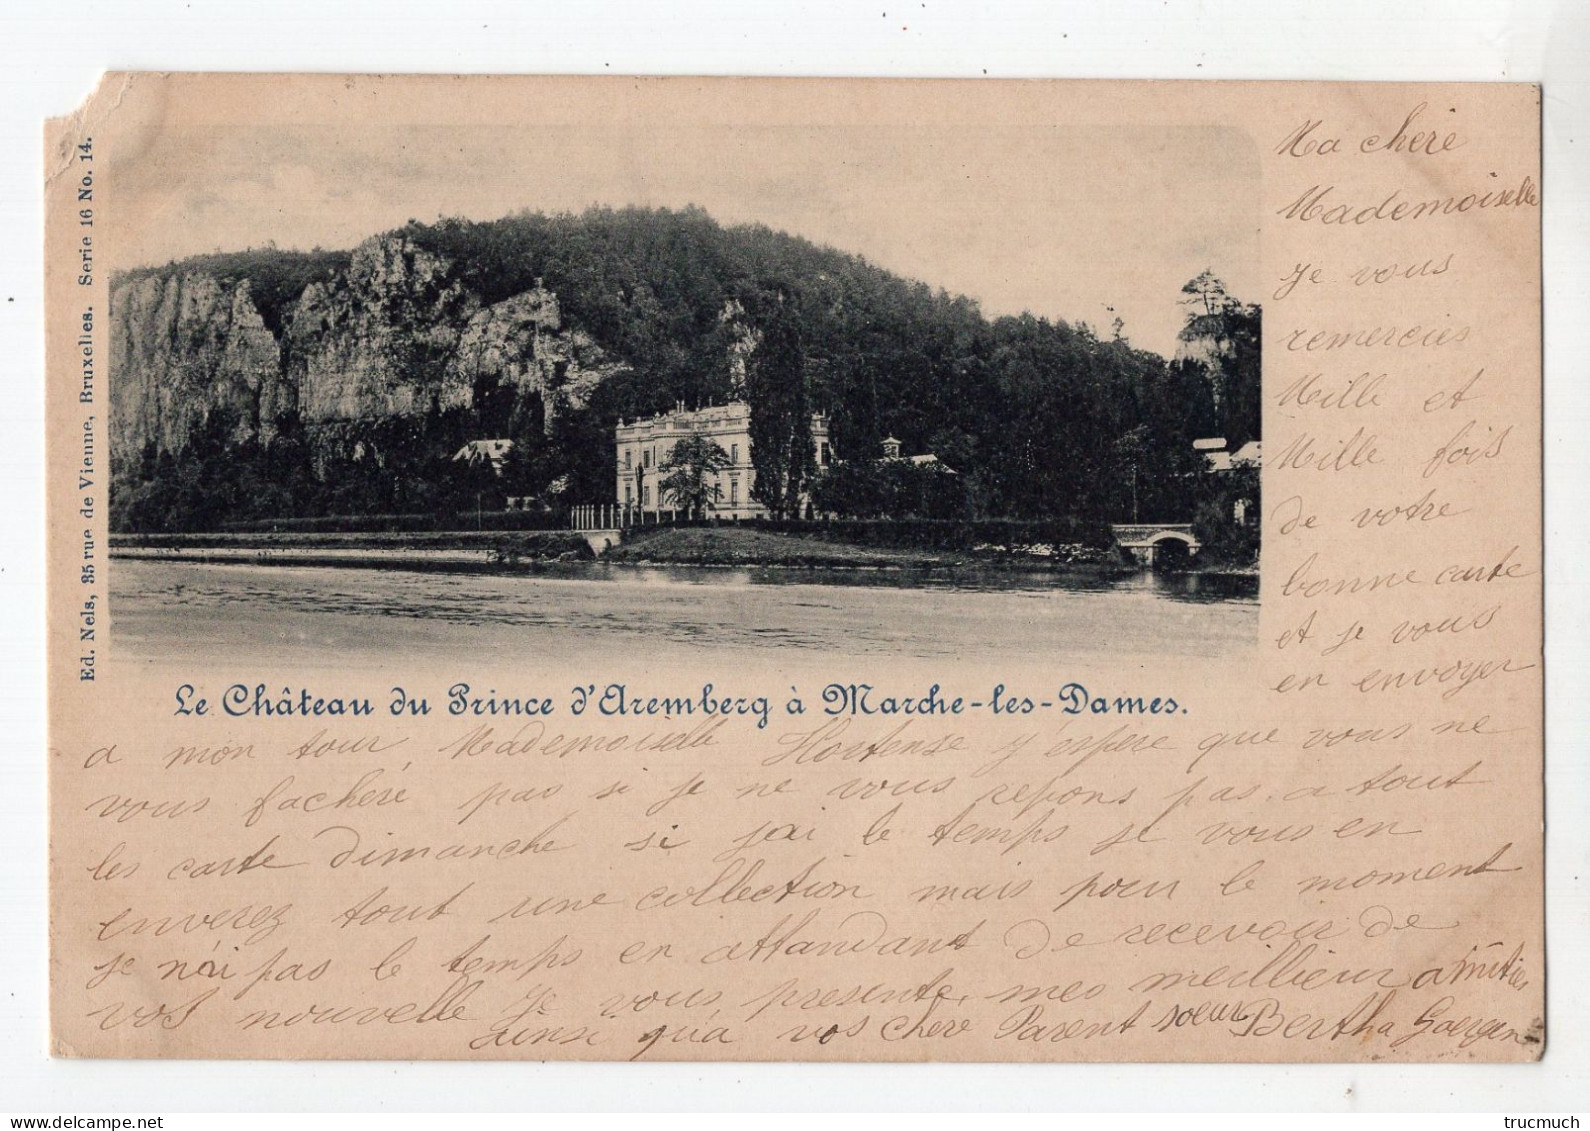 Ed. Nels, 35 rue de Vienne, Bruxelles. Serie 16 No. 14.
Le Château du Prince d'Aremberg à Marche-les-Dames.
Ma chere
Mademoiselle
Je vous
remercies
Mille et
Mille fois
de votre
bonne carte
et je vous
en envoyer
a mon tour, Mademoiselle Hortense j'espere que vous ne
vous facheré pas si je ne vous repons pas a tout
les carte dimanche si jai le temps je vous en
enverez tout une collection mais pour le moment
je n'ai pas le temps en attandant de recevoir de
vos nouvelle je vous presente mes meillieur amities
ainsi qu'a vos chere Parent soeur Bertha Goergen
trucmuch